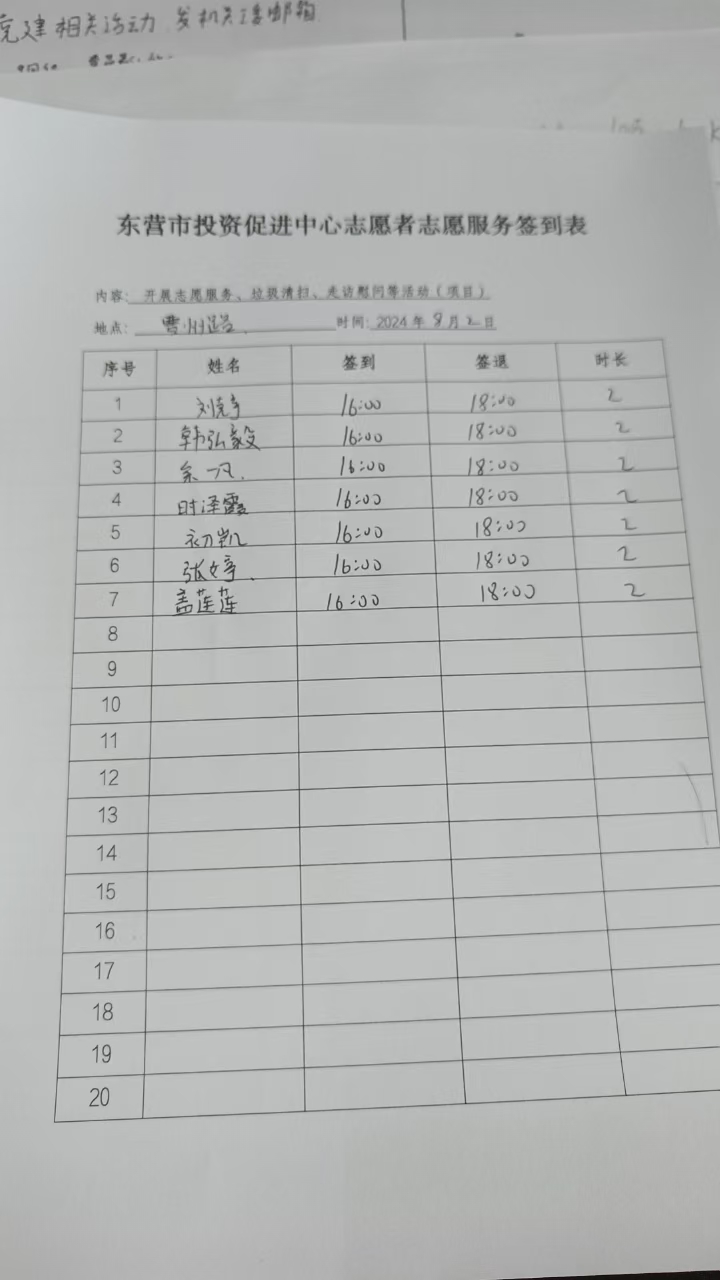 党建相关活动 发机关邮箱
东营市投资促进中心志愿者志愿服务签到表
内容: 开展志愿服务、垃圾清扫、走访慰问等活动(项目)
地点: 曹州路. 时间: 2024年8月2日
序号 姓名 签到 签退 时长
1 刘克亭 16:00 18:00 2
2 韩弘毅 16:00 18:00 2
3 余一凡. 16:00 18:00 2
4 时泽霞 16:00 18:00 2
5 初凯 16:00 18:00 2
6 张婷. 16:00 18:00 2
7 盖莲莲 16:00 18:00 2
8
9
10
11
12
13
14
15
16
17
18
19
20